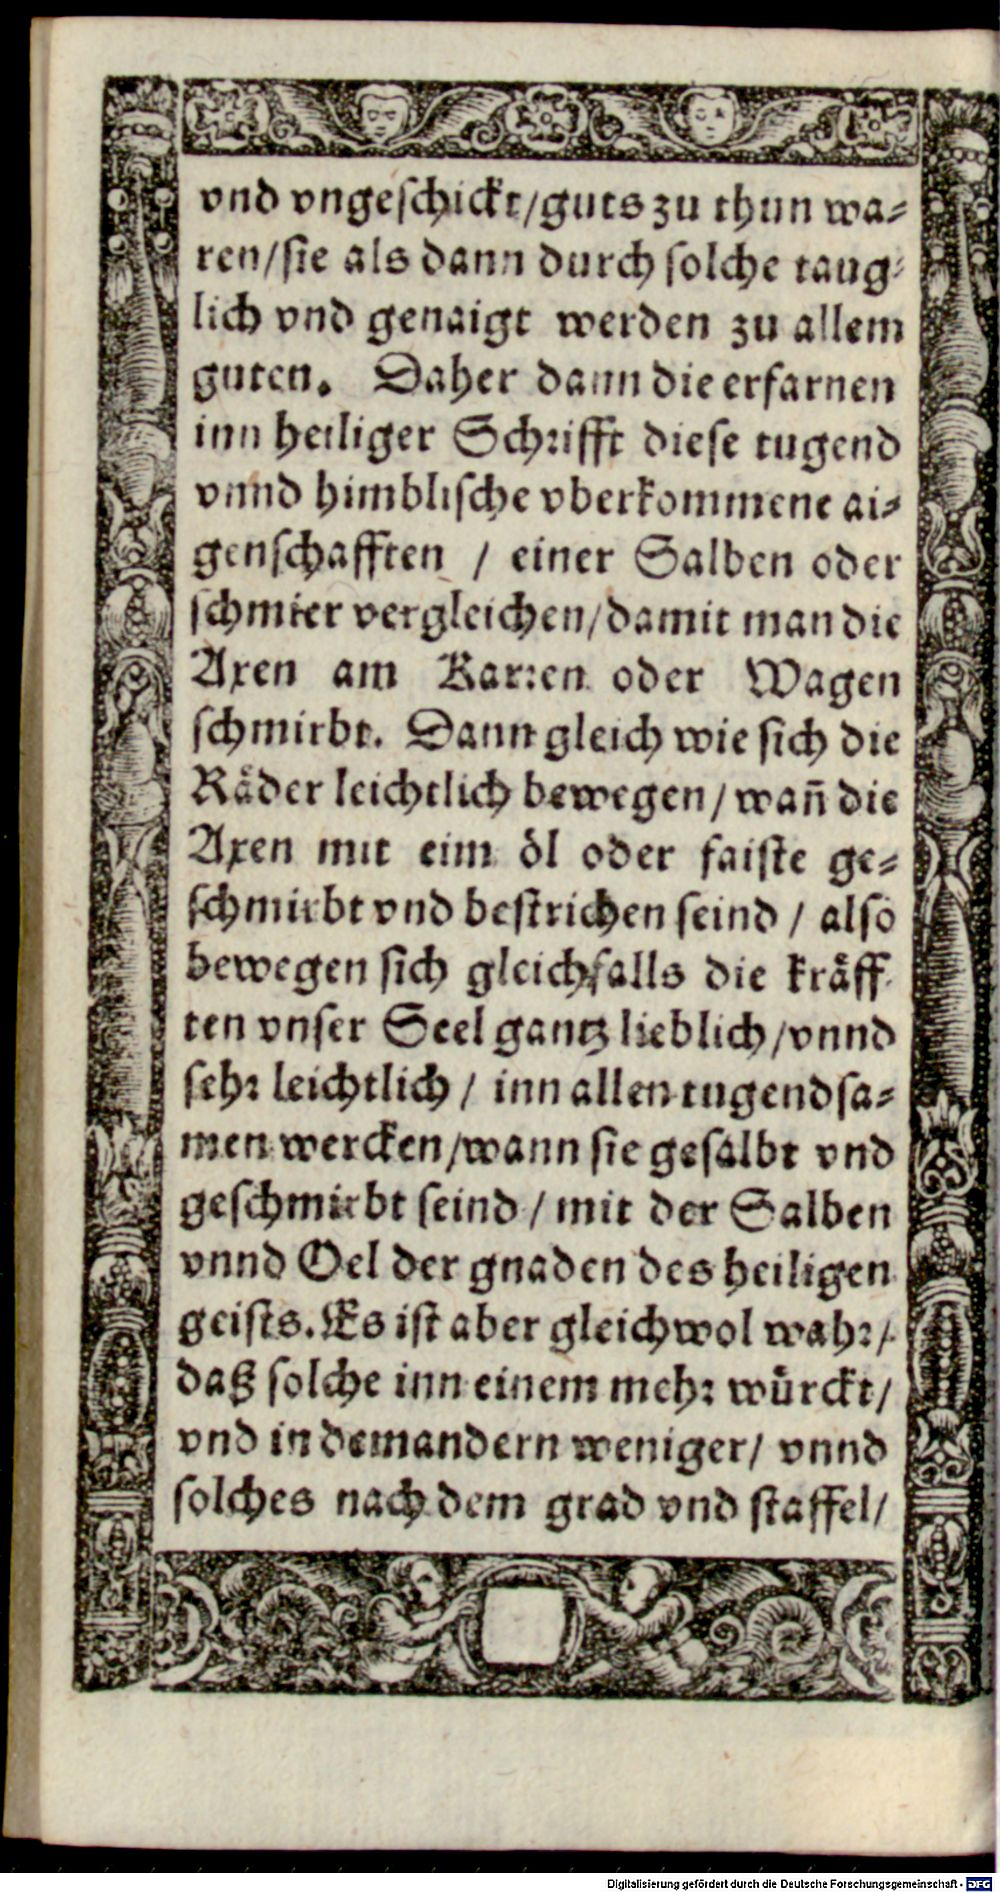 vnd vngeschickt/guts zu thun wa⸗
ren/sie als dann durch solche taug⸗
lich vnd genaigt werden zu allem
guten. Daher dann die erfarnen
inn heiliger Schrifft diese tugend
vnnd himblische vberkommene ai⸗
genschafften / einer Salben oder
schmier vergleichen/damit man die
Axen am Karren oder Wagen
schmirbt. Dann gleich wie sich die
Räder leichtlich bewegen/wañ die
Axen mit eim öl oder faiste ge⸗
schmirbt vnd bestrichen seind / also
bewegen sich gleichfalls die kräff⸗
ten vnser Seel gantz lieblich/vnnd
sehr leichtlich / inn allen tugendsa⸗
men wercken/wann sie gesalbt vnd
geschmirbt seind / mit der Salben
vnnd Oel der gnaden des heiligen
geists. Es ist aber gleichwol wahr/
daß solche inn einem mehr würckt/
vnd in dem andern weniger/ vnnd
solches nach dem grad vnd staffel/
Digitalisierung gefördert durch die Deutsche Forschungsgemeinschaft - DFG